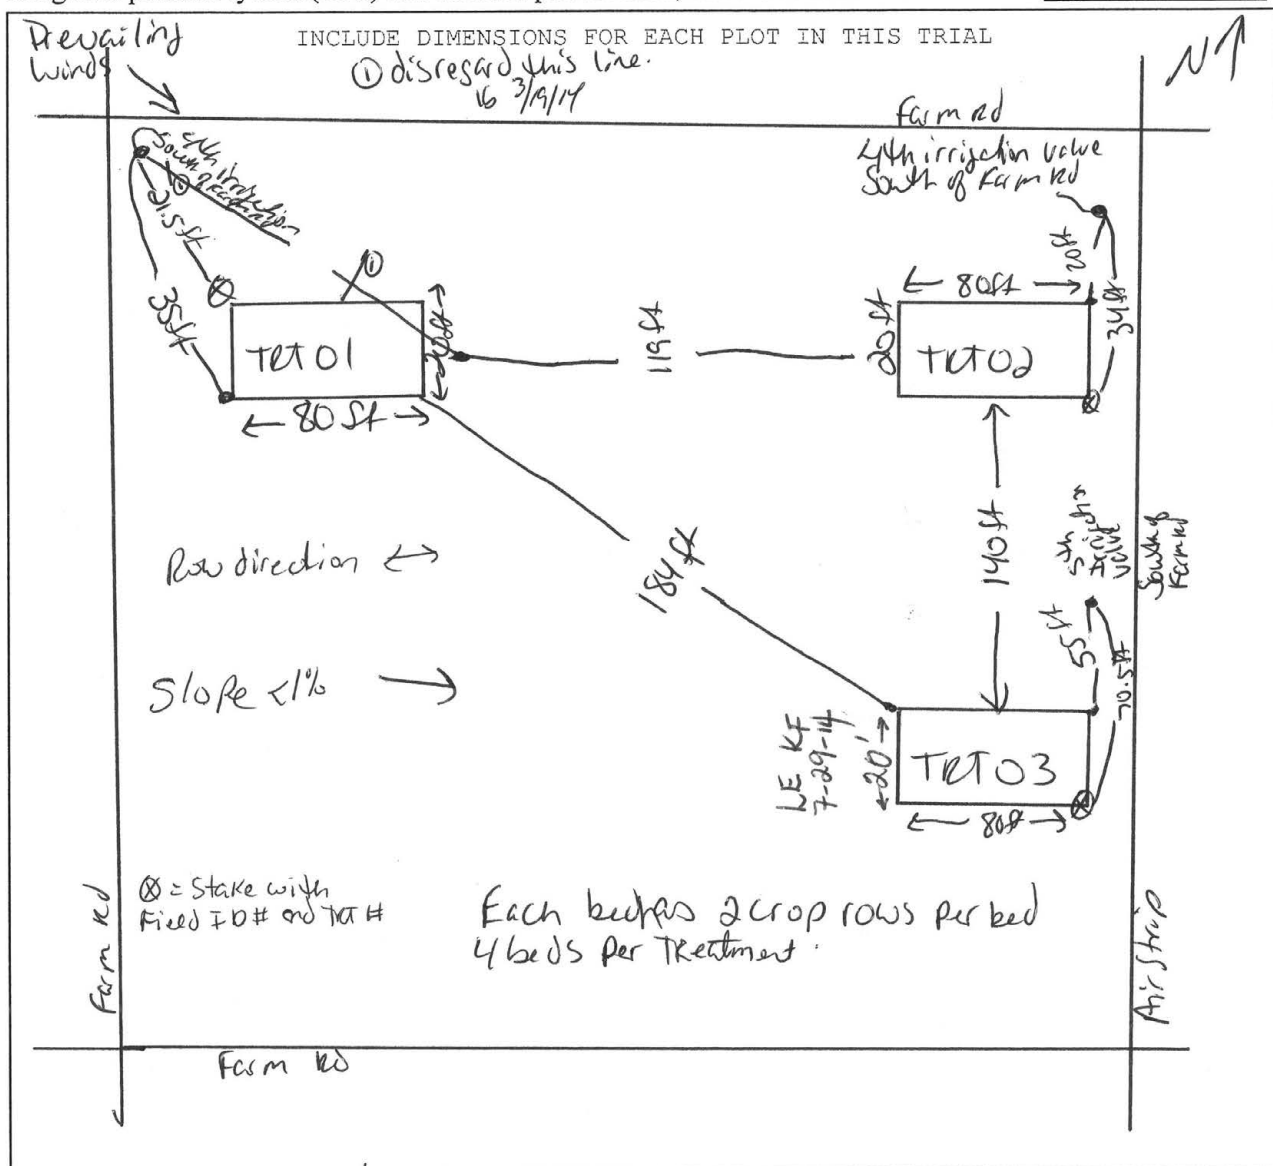 Prevailing
Winds
INCLUDE DIMENSIONS FOR EACH PLOT IN THIS TRIAL
① disregard this line.
3/19/14
N
Farm Rd
4th irrigation valve
South of Farm Rd
4th irrigation
South
21.5 ft
35ft
①
20ft
TRT01
80ft
119 ft
80ft
20ft
34ft
20ft
TRT02
184 ft
140ft
5th
valve
South of
Farm Rd
Row direction ↔
Slope <1% →
55 ft
70.5ft
LE KF
7-29-14
20'
TRT03
80ft
⊗ = Stake with
Field ID# and TRT#
Each bed has 2 crop rows per bed
4 beds per Treatment.
Farm Rd
Air Strip
Farm Rd